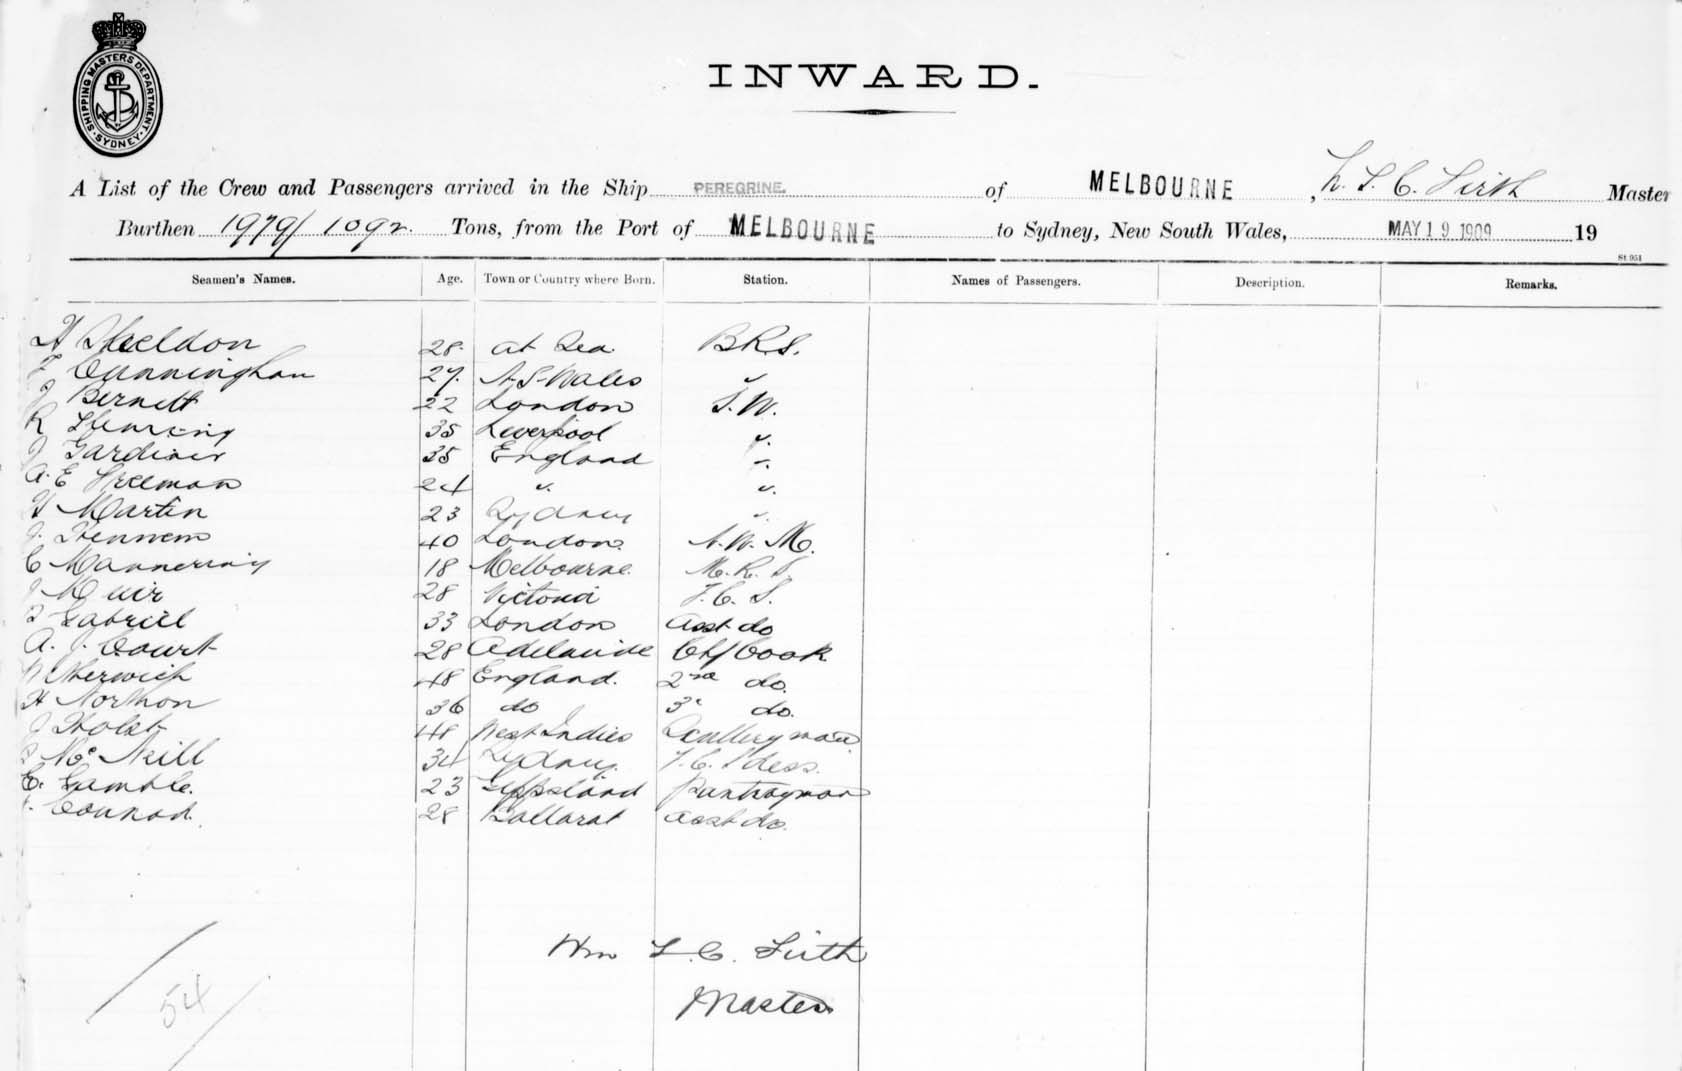 SHIPPING MASTERS DEPARTMENT
SYDNEY
INWARD.
A List of the Crew and Passengers arrived in the Ship PEREGRINE. of MELBOURNE, L. C. Firth Master
Burthen 1979/1092. Tons, from the Port of MELBOURNE to Sydney, New South Wales, MAY 19 1909 19
St 951
Seamen's Names. Age. Town or Country where Born. Station. Names of Passengers. Description. Remarks.
H Sheldon 28. at Sea. B.R.S.
Cunningham 27. N S Wales "
J Bernett 22 London S.W.
R 35 Liverpool "
J Gardiner 35 England "
A. E Freeman 24 " "
H Martin 23 Sydney "
J. 40 London. N. W. M.
C Mannering 18 Melbourne. M. R. S
J Muir 28 Victoria F. C. S.
Gabriel 33 London asst do
A. J. Court 28 Adelaide Chf Cook
Sherwich 48 England. 2nd do.
H Northon 36 do 3" do.
J Holst 48 West Indies Scullery man
McNeill 34 Sydney. F. C. S'dess.
E. Gamble. 23 Gippsland Pantryman
Connod. 28 Ballarat asst do.
Wm L. C. Firth
Master
54